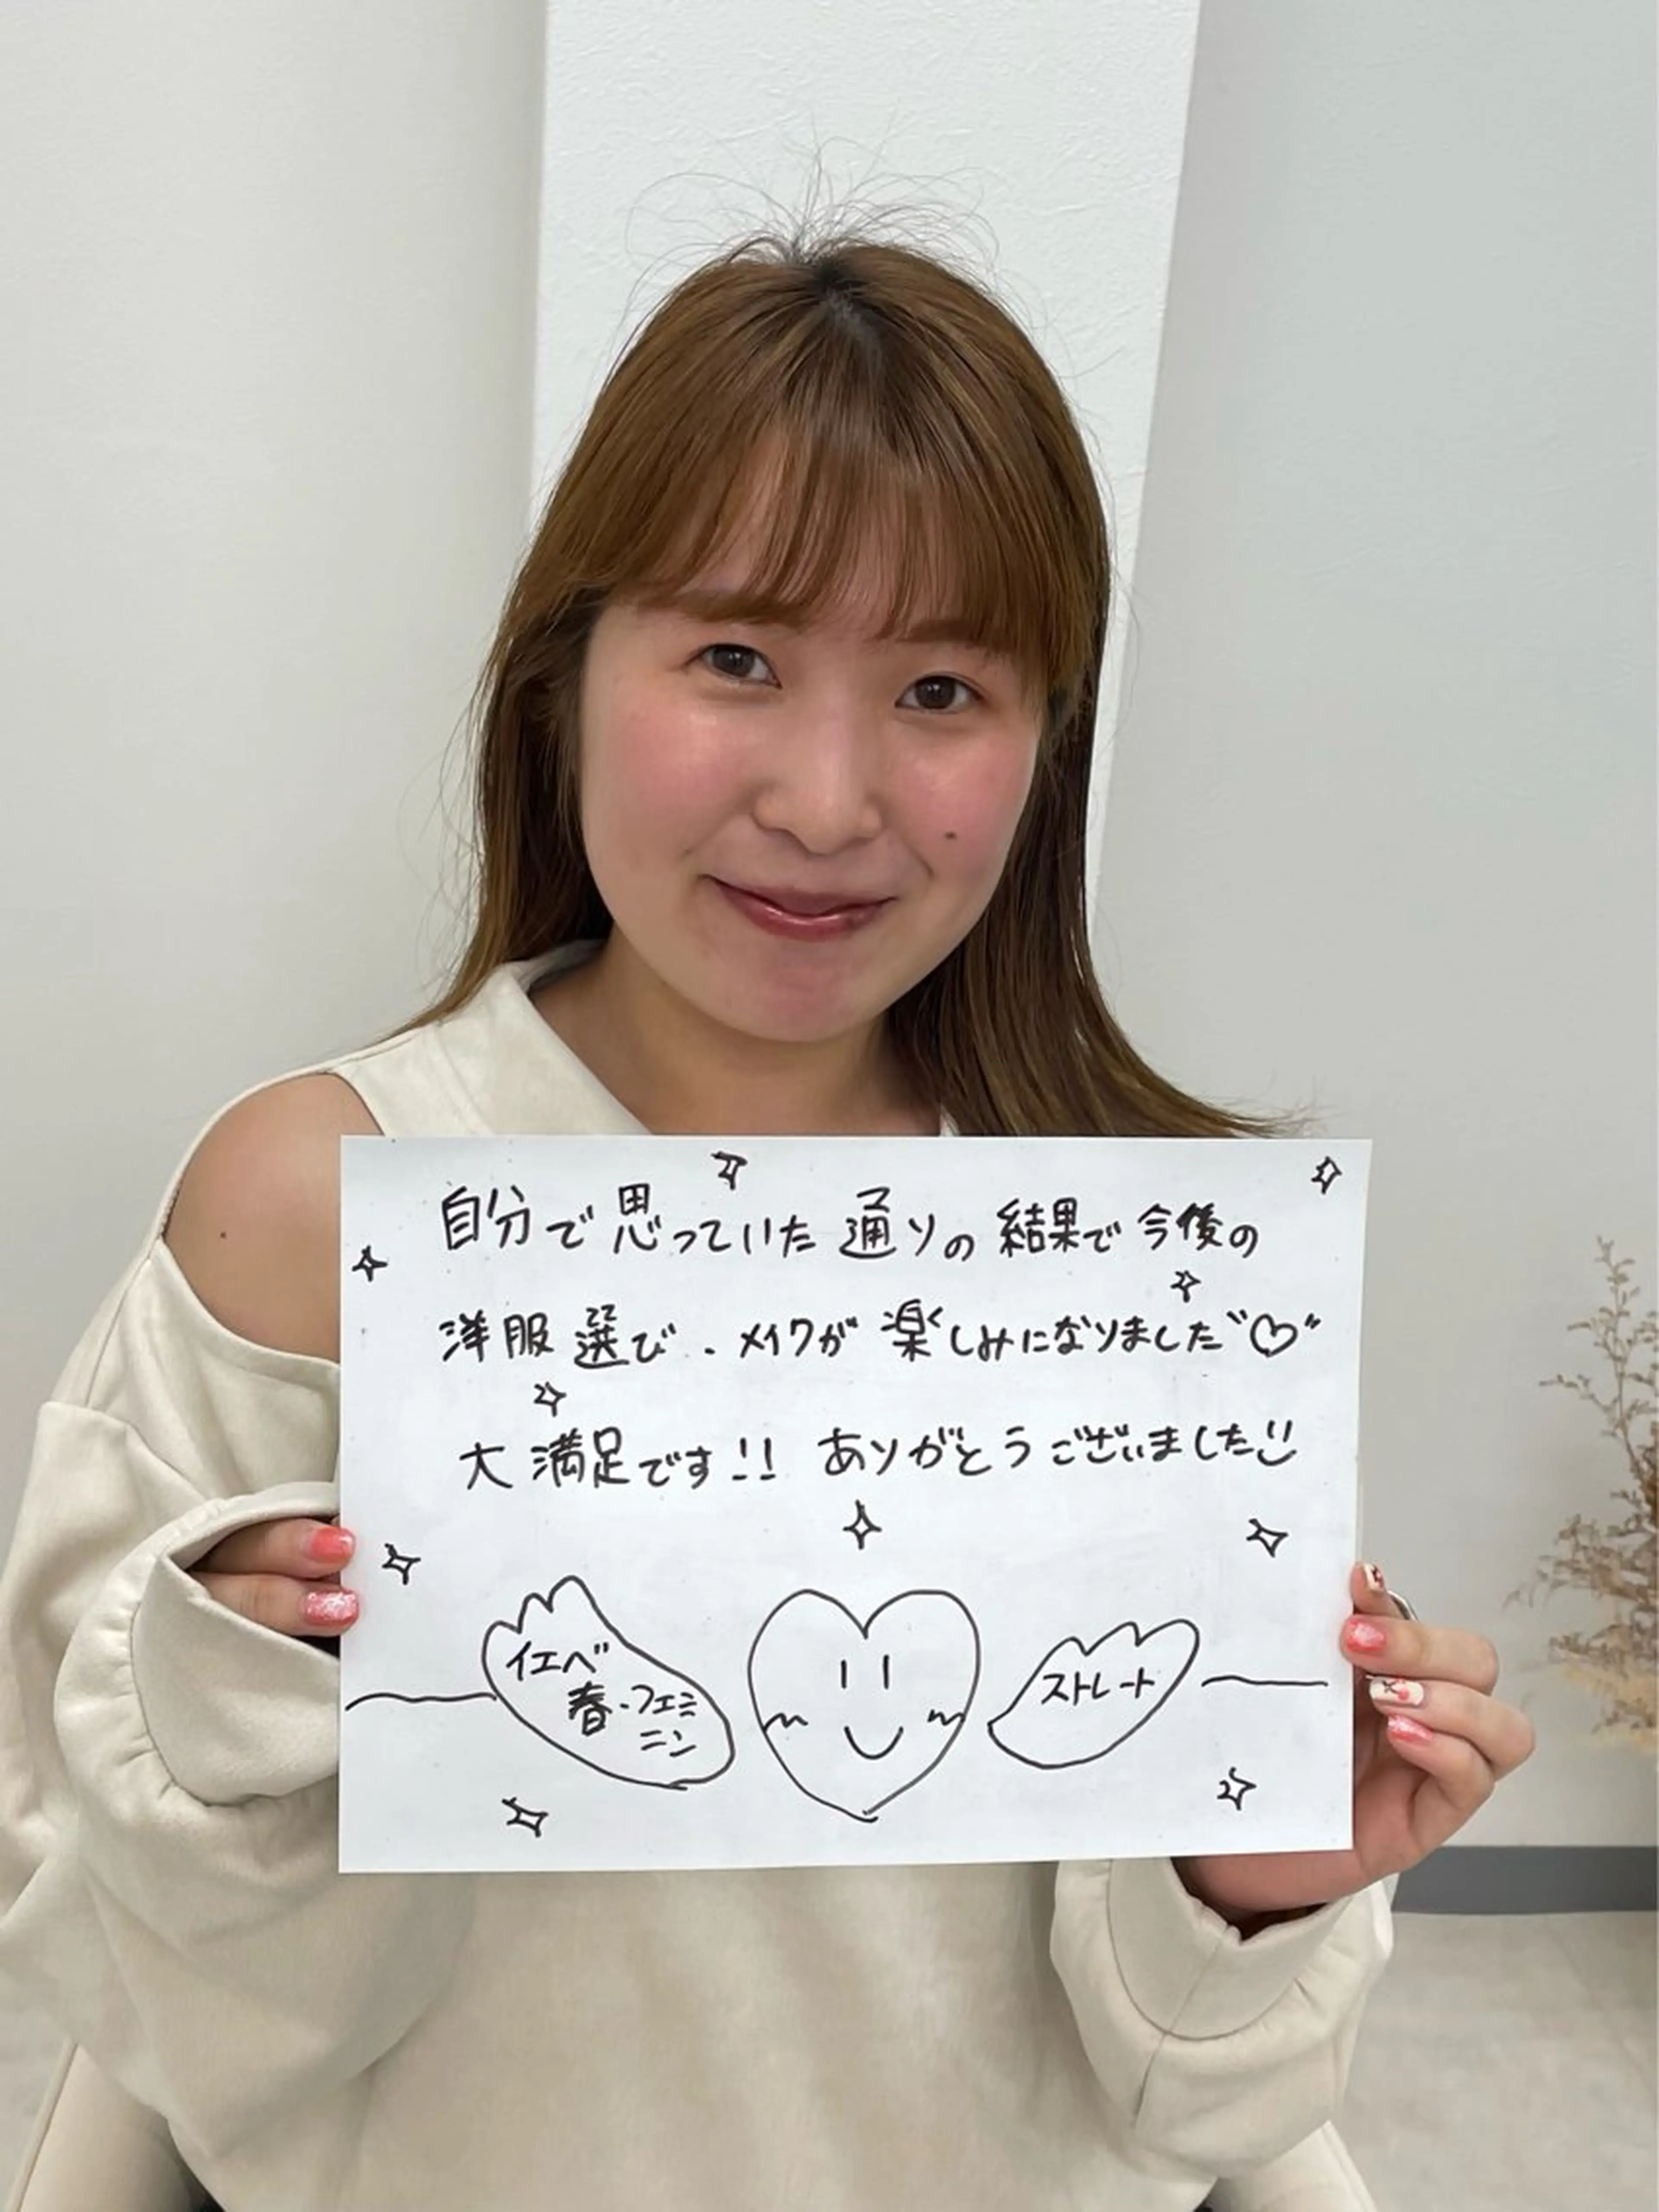 自分で思っていた通りの結果で今後の
洋服選び・メイクが楽しみになりました"♡"
大満足です!! ありがとうございました
イエベ
春・フェミ
ニン
ストレート